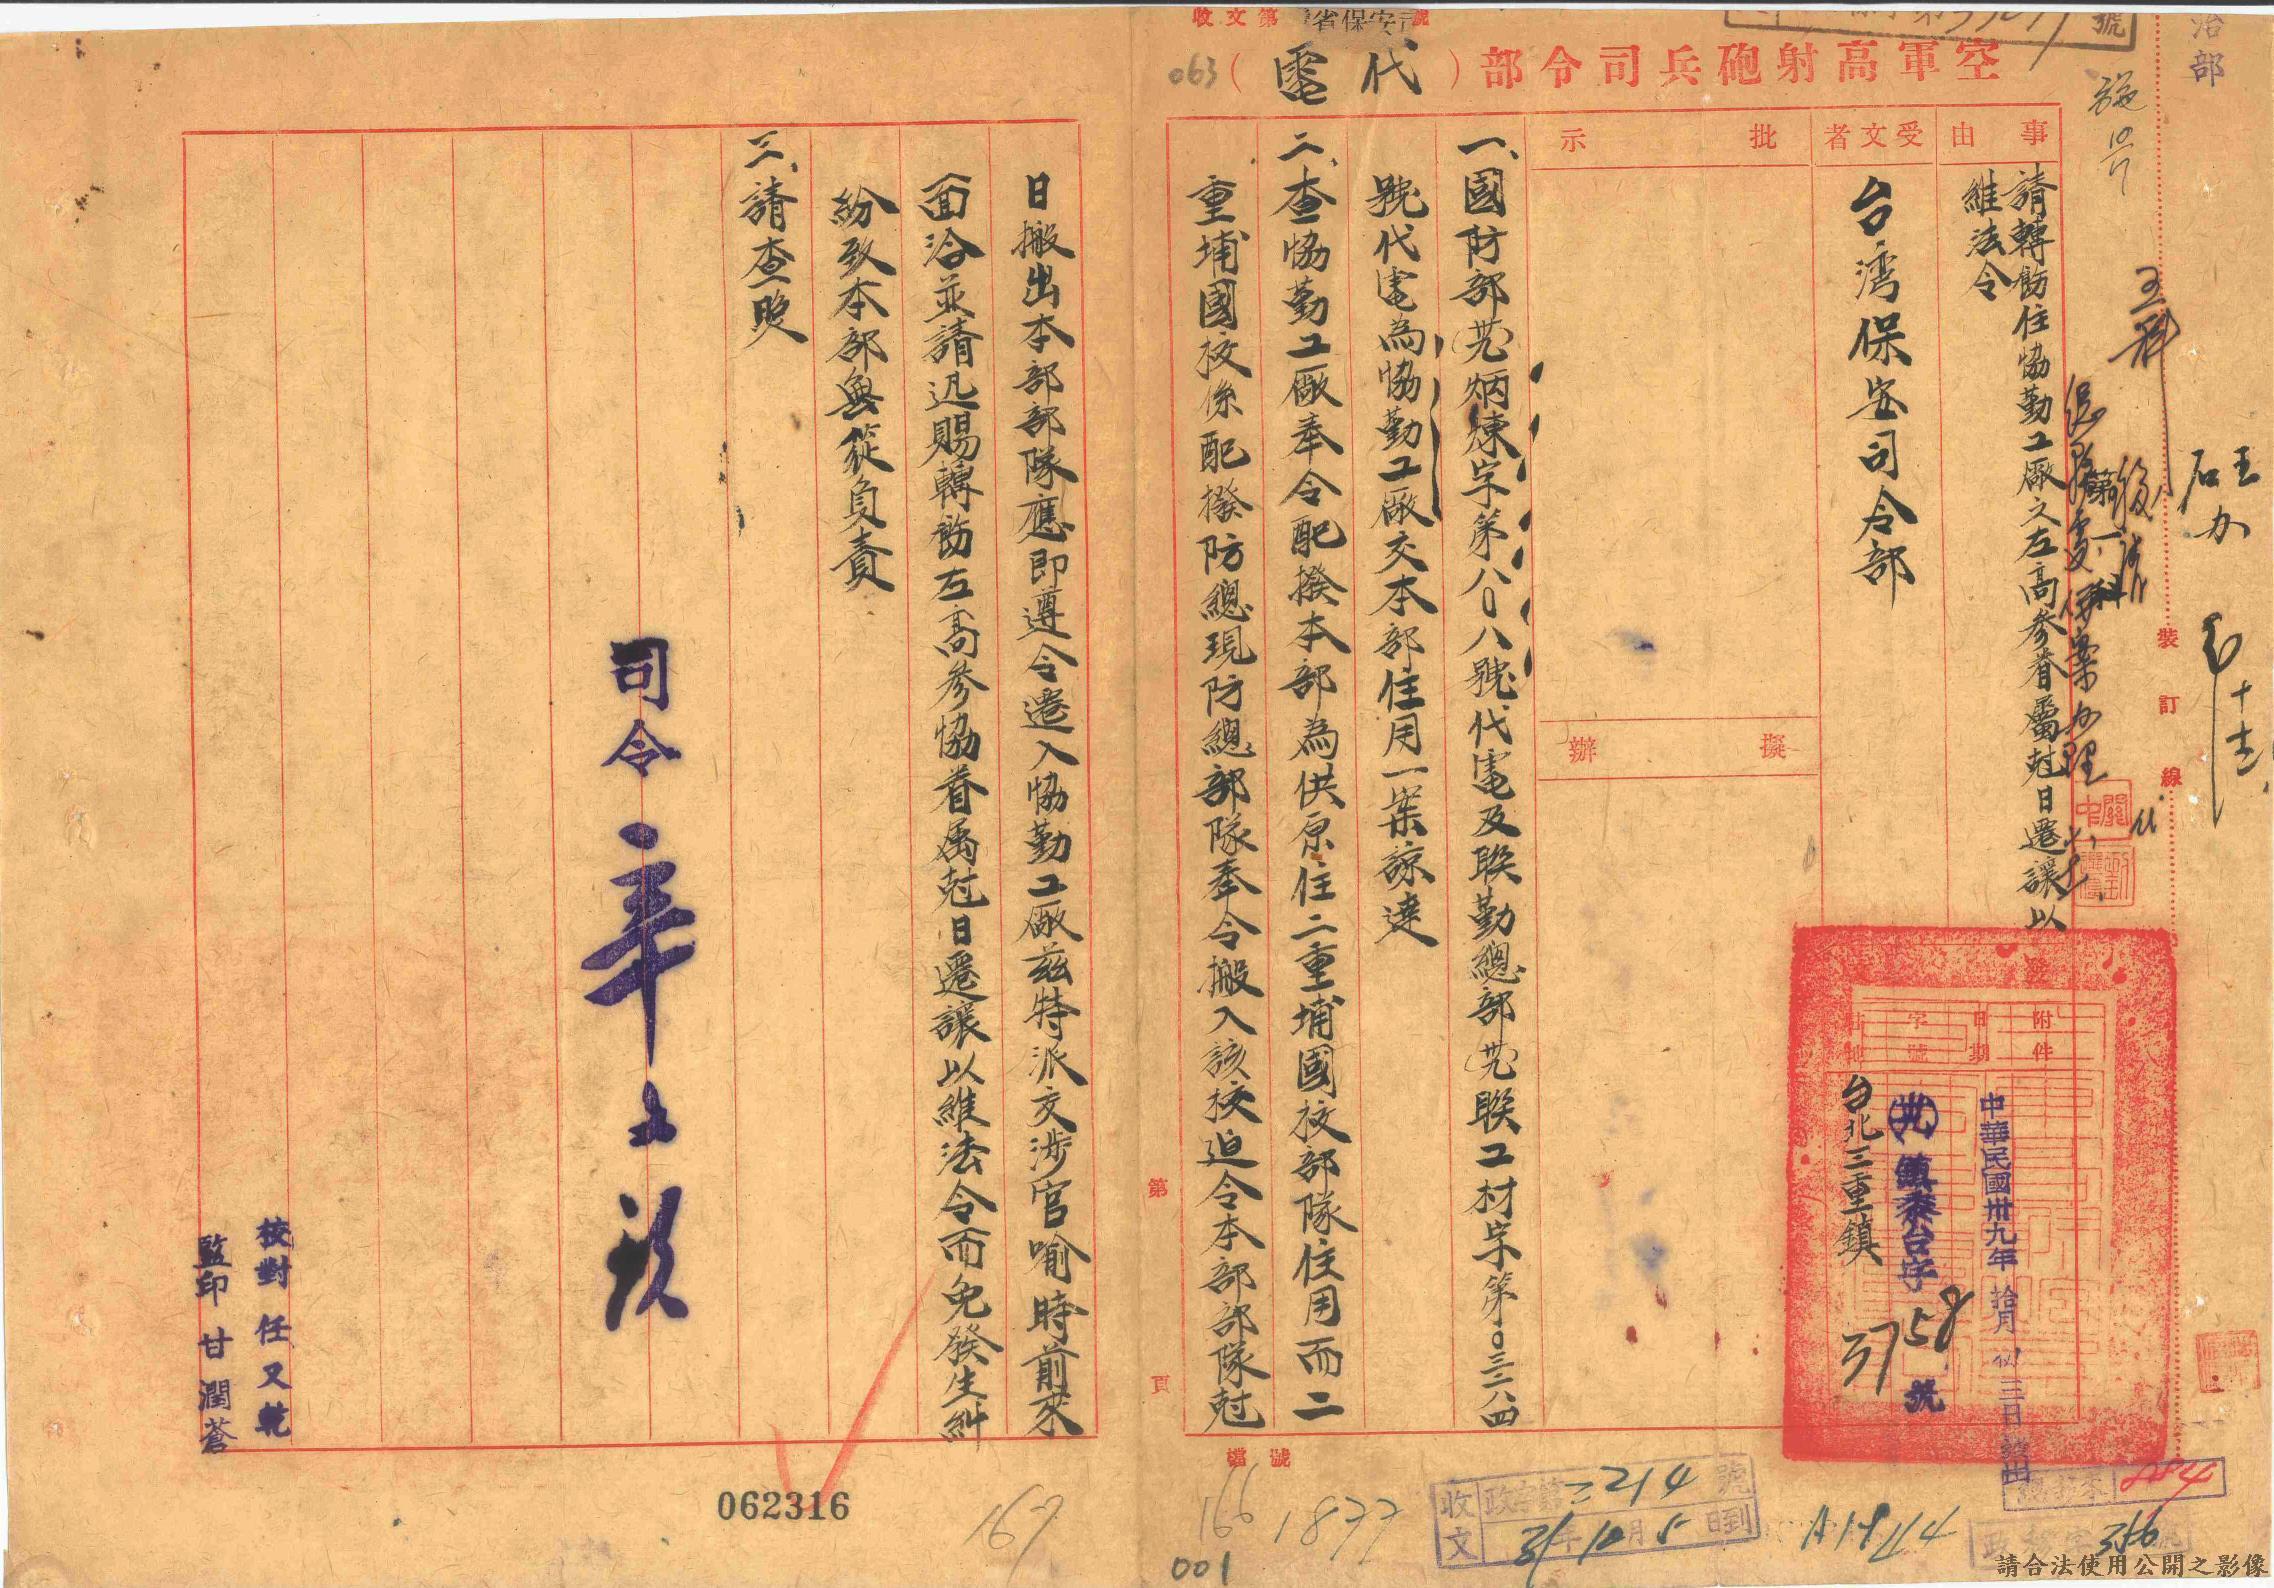 空軍高射砲兵司令部（代電）
事由
請轉飭住協勤工廠之左高參眷屬尅日遷讓以
維法令
受文者
台湾保安司令部
批示
擬辦
附件
日期
字號
中華民國卅九年拾月三日
鎮泰台字3758號
台北三重鎮
一、國防部炳煉字第八〇八號代電及聯勤總部聯工材字第〇三三八四
號代電為協勤工廠交本部住用一案諒達
二、查協勤工廠奉令配撥本部為供原住二重埔國校部隊住用而二
重埔國校係配撥防總現防總部隊奉令搬入該校迫令本部部隊尅
日搬出本部部隊應即遵令遷入協勤工廠茲特派交涉官喻時前來
面洽並請迅賜轉飭左高參協眷屬尅日遷讓以維法令而免發生糾
紛致本部無從負責
三、請查照
司令
校對 任又乾
監印 甘潤蒼
裝訂線
第 頁
檔號
收文第 號
收文
政字第2214號
39年10月5日到
王科
石王
第一科
063
062316
167
166
1877
001
請合法使用公開之影像